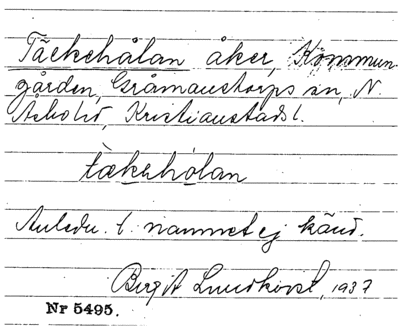 Täckehålan åker, Kommun-
gården, Gråmanstorps sn, N.
Asbo hd, Kristianstads l.
tækehólan
Anledn. t. namnet ej känd.
Birgit Lundkvist, 1937
Nr 5495.